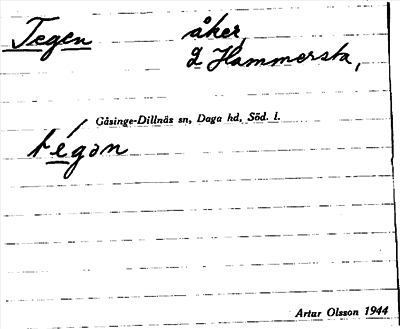 Tegen åker,
g Hammersta,
Gåsinge-Dillnäs sn, Daga hd, Söd. l.
tégan
Artar Olsson 1944